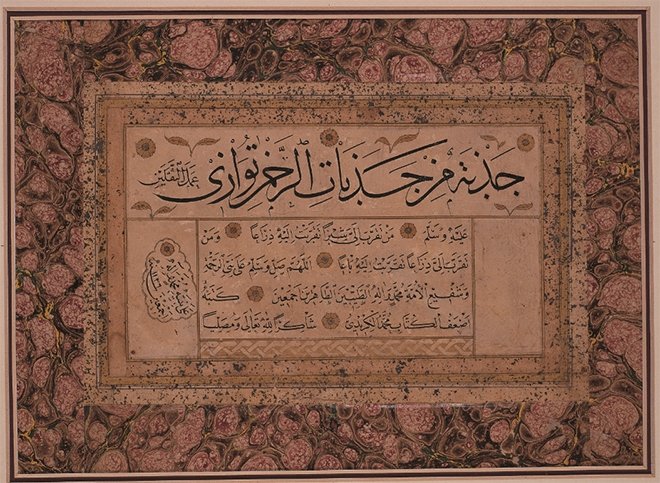 جذبة من جذبات الرحمن توازى
عمل الثقلين
عليه وسلم من تقرب الى شبرا تقربت اليه ذراعا ومن
تقرب الى ذراعا تقربت اليه باعا اللهم صل وسلم على نبى الرحمة
وشفيع الامة محمد وآله الطيبين الطاهرين اجمعين كتبه
اضعف الكتاب محمد شاكرا لله تعالى ومصليا